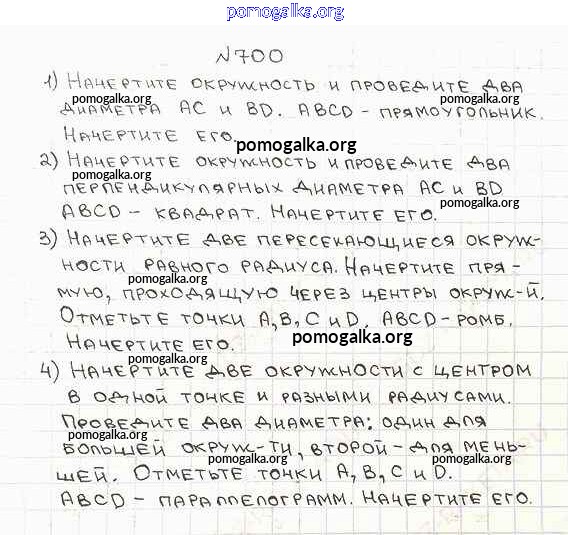 pomogalka.org
№700
1) Начертите окружность и проведите два
диаметра AC и BD. ABCD - прямоугольник.
pomogalka.org pomogalka.org
Начертите его.
pomogalka.org
2) Начертите окружность и проведите два
pomogalka.org pomogalka.org
перпендикулярных диаметра AC и BD
ABCD - квадрат. Начертите его.
pomogalka.org
3) Начертите две пересекающиеся окруж-
ности равного радиуса. Начертите пря-
pomogalka.org
мую, проходящую через центры окруж-й.
pomogalka.org
Отметьте точки A, B, C и D. ABCD - ромб.
Начертите его.
pomogalka.org pomogalka.org
4) Начертите две окружности с центром
в одной точке и разными радиусами.
pomogalka.org
Проведите два диаметра: один для
большей окруж-ти, второй - для мень-
pomogalka.org
шей. Отметьте точки A, B, C и D.
pomogalka.org
ABCD - параллелограмм. Начертите его.
pomogalka.org pomogalka.org